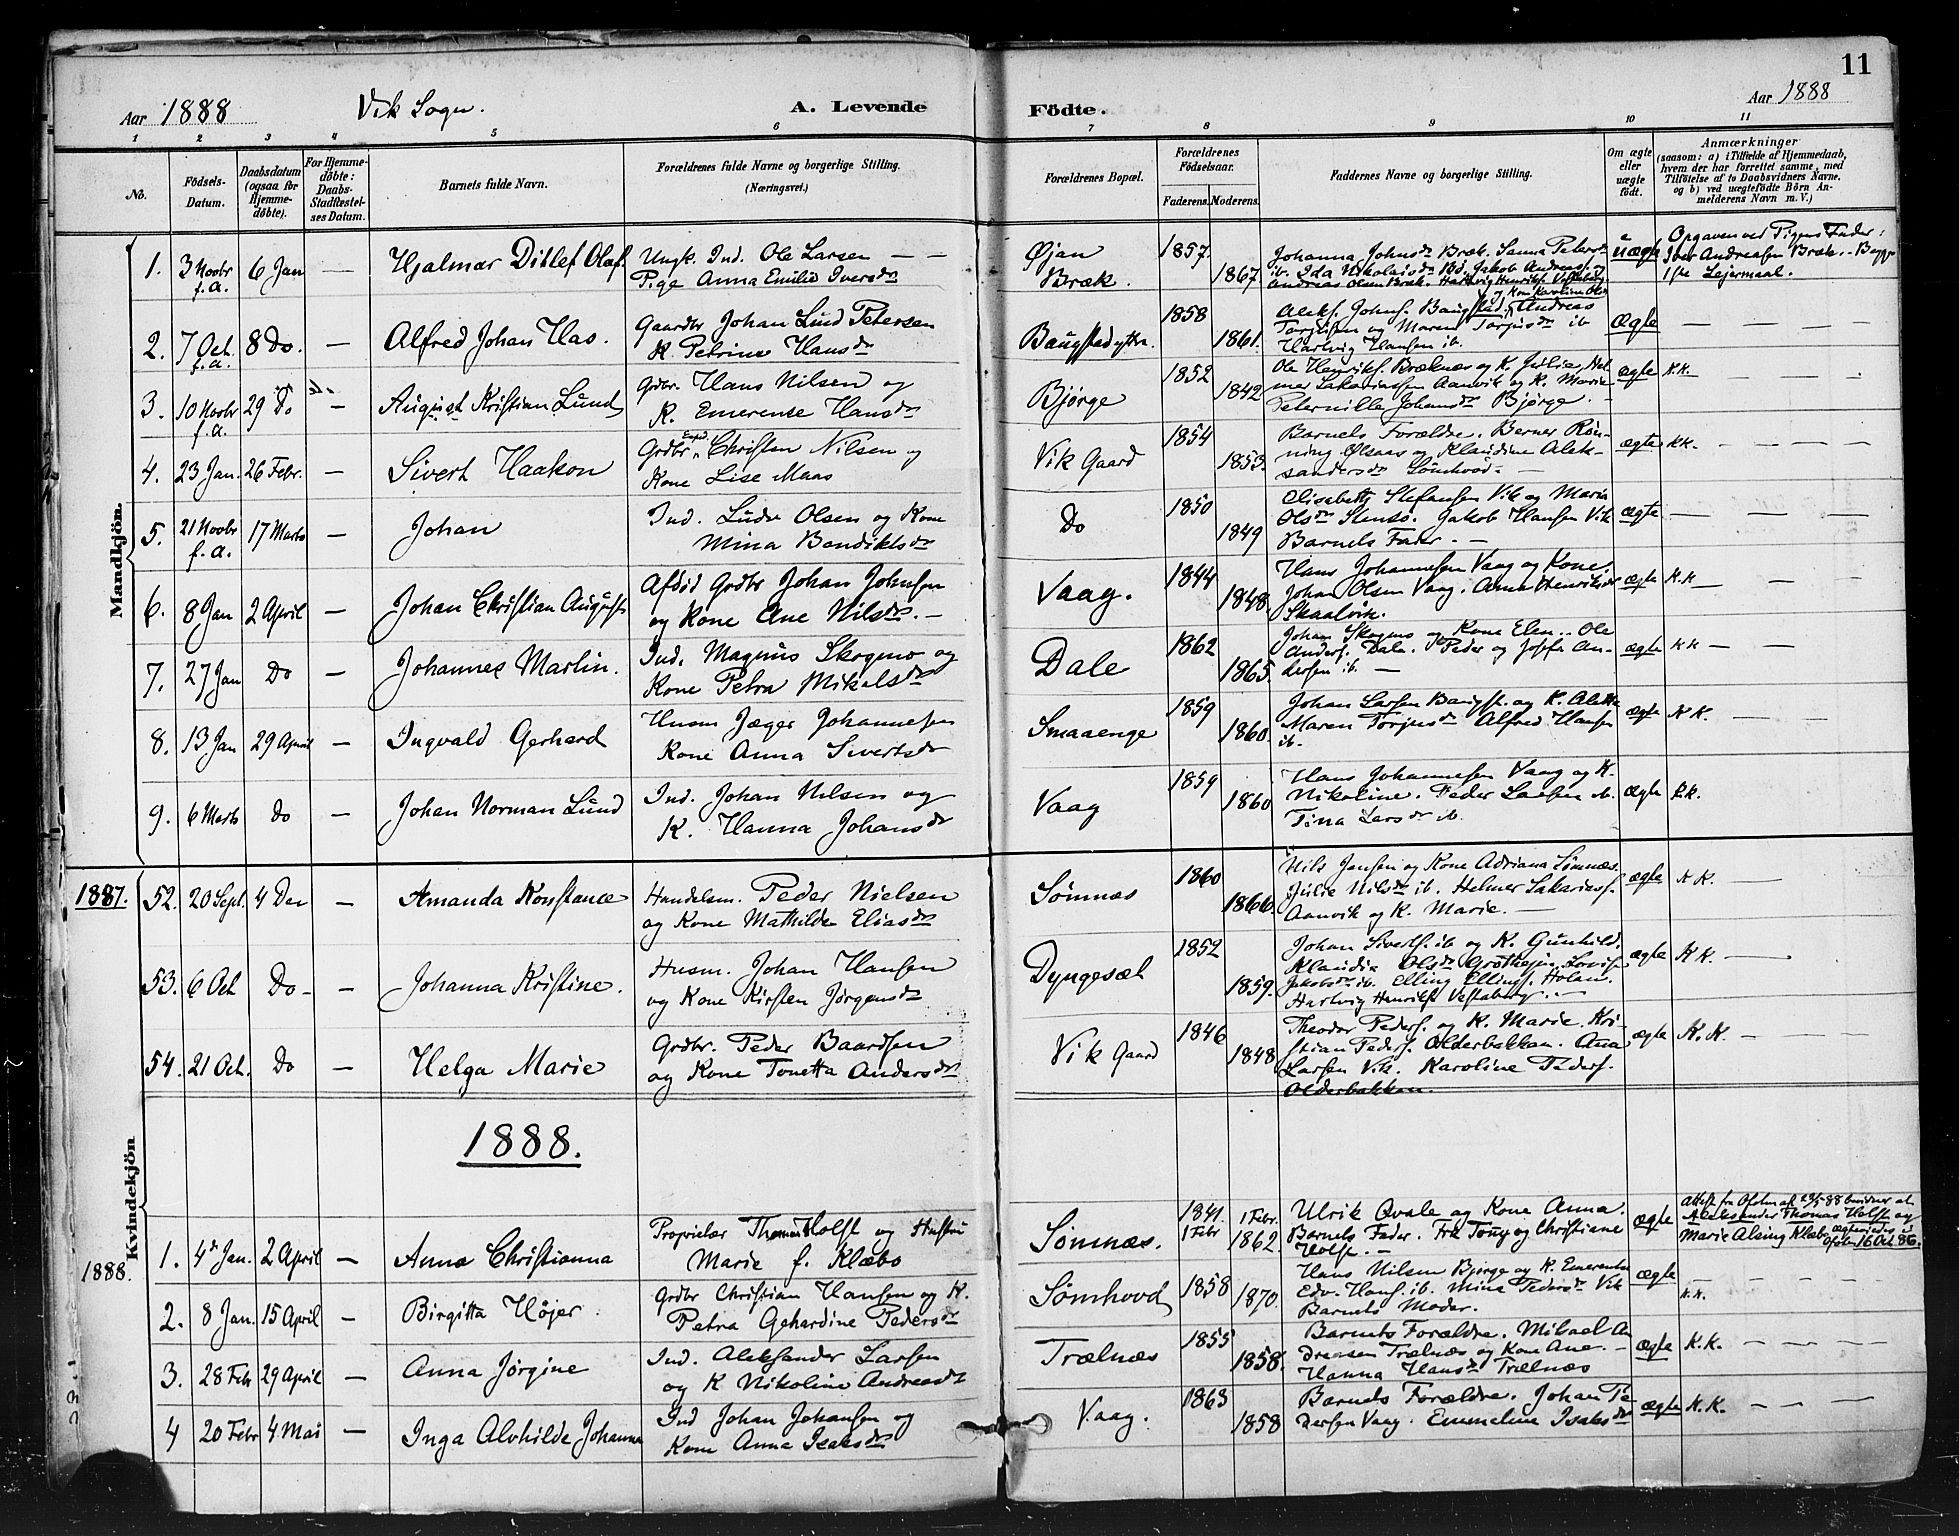 11
Aar 1888 Vik Sogn. A. Levende Födte. Aar 1888
1 2 3 4 5 6 7 8 9 10 11
No. Födsels-Datum. Daabsdatum (ogsaa for Hjemme-døbte). For Hjemme-døbte: Daabs-Stadfæstel-ses Datum. Barnets fulde Navn. Forældrenes fulde Navne og borgerlige Stilling. (Næringsvei.) Forældrenes Bopæl. Forældrenes Födselsaar. Faderens. Moderens. Faddernes Navne og borgerlige Stilling. Om ægte eller uægte født. Anmærkninger (saasom: a) i Tilfælde af Hjemmedaab, hvem der har forrettet samme, med Tilföielse af to Daabsvidners Navne, og b) ved uegtefödte Börn An-melderens Navn m. V.)
Mandkjön.
1. 3 Novbr f.a. 6 Jan — Hjalmar Ditlef Olaf. Ungk. Ind. Ole Larsen — — Pige Anna Emilie Iversdr Øjan Bræk. 1857. 1867. Johanna Johnsdr Bræk. Sanna Petersdr ib. Ida Nikolaisdr Bø. Jakob Andreas. og Andreas Olsen Bræk. Hartvig Henriks. uægte Opgaven ved Pigens Fader: Iver Andreasen Bræk. - Begges 1ste Lejermaal.
2. 7 Oct. f.a. 8 Do. — Alfred Johan Has. Gaardbr Johan Lund Petersen K Petrine Hansdr Baugstadyttre. 1858 1861. Aleks. Johns. Baugstad og Kone Karoline Andreas Torjusen og Maren Torjusdr ib Hartvig Hansen ib. Ægte — — —
3. 10 Novbr f.a. 29 Do — August Kristian Lund Grdbr. Hans Nilsen og K. Emerense Hansdr Bjørge 1852 1842 Ole Henriks. Bræknæs og K. Julie. Helmer Sakariassen Aanvik og K. Marie Peternille Johansdr Bjørge. — ægte K.K. — — —
4. 23 Jan. 26 Febr. — Sivert Haakon Grdbr Christen Nilsen og Kone Lise Maas Vik Gaard 1854 1853. Barnets Forældre. Berner Rønning Olsaas og Klaudine Aleksandersdr Sømhovd. — ægte KK. — — —
5. 21 Novbr f.a. 17 Marts — Johan Ind. Ludv Olsen og Kone Mina Bendiktsdr Do 1850 1849 Elisabeth Stefansen Vik og Marie Olsdr Stensø. Jakob Hansen Vik Barnets Fader. — ægte — — —
6. 8 Jan 2 April — Johan Christian August Afdød Grdbr Johan Johnsen og Kone Ane Nilsdr. — Vaag. 1844 1848. Hans Johannesen Vaag og Kone. Johan Olsen Vaag. Anna Henriksdr Skaalvik. ægte K.K — — —
7. 27 Jan Do — Johannes Martin. Ind. Magnus Skogmo og Kone Petra Mikalsdr Dale 1862 1865. Johan Skogmo og Kone Elen. . Ole Anders. Dale. Peder og Josefa Andersen ib. — ægte KK — — —
8. 13 Jan 29 April — Ingvald Gerhard Husm Jæger Johannesen Kone Anna Sivertsdr Smaaenge 1859 1860. Johan Larsen Baugst. og K. Aletta Maren Torjusdr Alfred Hansen ib. ægte K K. — —
9. 6 Marts Do — Johan Norman Lund Ind. Johan Nilsen og K. Hanna Johansdr Vaag 1859 1860 Hans Johannesen Vaag og K. Nikoline. Peder Larsen ib. Tina Larsdr ib. ægte K.K. — — —
Kvindekjön
1887. 52. 20 Sept. 4 Dec — Amanda Konstance Handelsm. Peder Nielsen og Kone Mathilde Eliasdr Sømnæs 1860 1866. Nils Jensen og Kone Adriana Sømnæs Julie Nilsdr ib. Helmer Sakarias. Aanvik og K. Marie. — ægte K K. —
53. 6 Oct Do — — Johanna Kristine. Husm. Johan Hansen og Kone Kirsten Jørgensdr Dyngesæt 1852 1859. Johan Siverts. ib og K. Gunhild. Klaudia Olsdr Jakobsdr ib. Elling Ellings. Holan. Hartvig Henriks ægte K K. —
54. 21 Oct. Do — Helga Marie Grdbr. Peder Baardsen og Kone Tonetta Andersdr Vik Gaard 1846 1848 Theodor Peders. og K. Marie. Kristian Peders. Olderbakkan. Ana Larsen Vik. Karoline Peders. Olderbakkan. ægte K.K. — — —
1888.
1888. 1. 4de Jan. 2 April — Anna Christianna Proprietær Thomas Holst og Hustru Marie f. Klæbo Sømnæs. 1841. 1 Febr 1 Febr. 1862. Ulrik Qvale og Kone Anna. Barnets Fader. Frk Tony og Christiane Holst. — ægte Aleksander Thomas Holst og Marie Alsing Klæbo 16 Oct 86.
2. 8 Jan. 15 April — Birgitta Højer. Grdbr Christian Hansen og K. Petra Gehardine Pedersdr Sømhovd 1858 1870. Hans Nilsen Bjørge og K. Emerentse Edv. Hans. ib. Mina Pedersdr Vik Barnets Moder. ægte K.K. — — —
3. 28 Febr 29 April — Anna Jørgine Ind. Aleksander Larsen og K Nikoline Andreasdr Trælnæs 1855 1858. Barnets Forældre. Mikael Andreasen Trælnæs og Kone Ane. — Hanna Hansdr Trælnæs ægte K.K. — — —
4 20 Febr 4 Mai — Inga Alvhilde Johanna Ind Johan Johansen og Kone Anna Isaksdr Vaag. 1863 1858 Barnets Forældre. Johan Pedersen Vaag. Emmeline Isaksdr ægte K.K. — — —